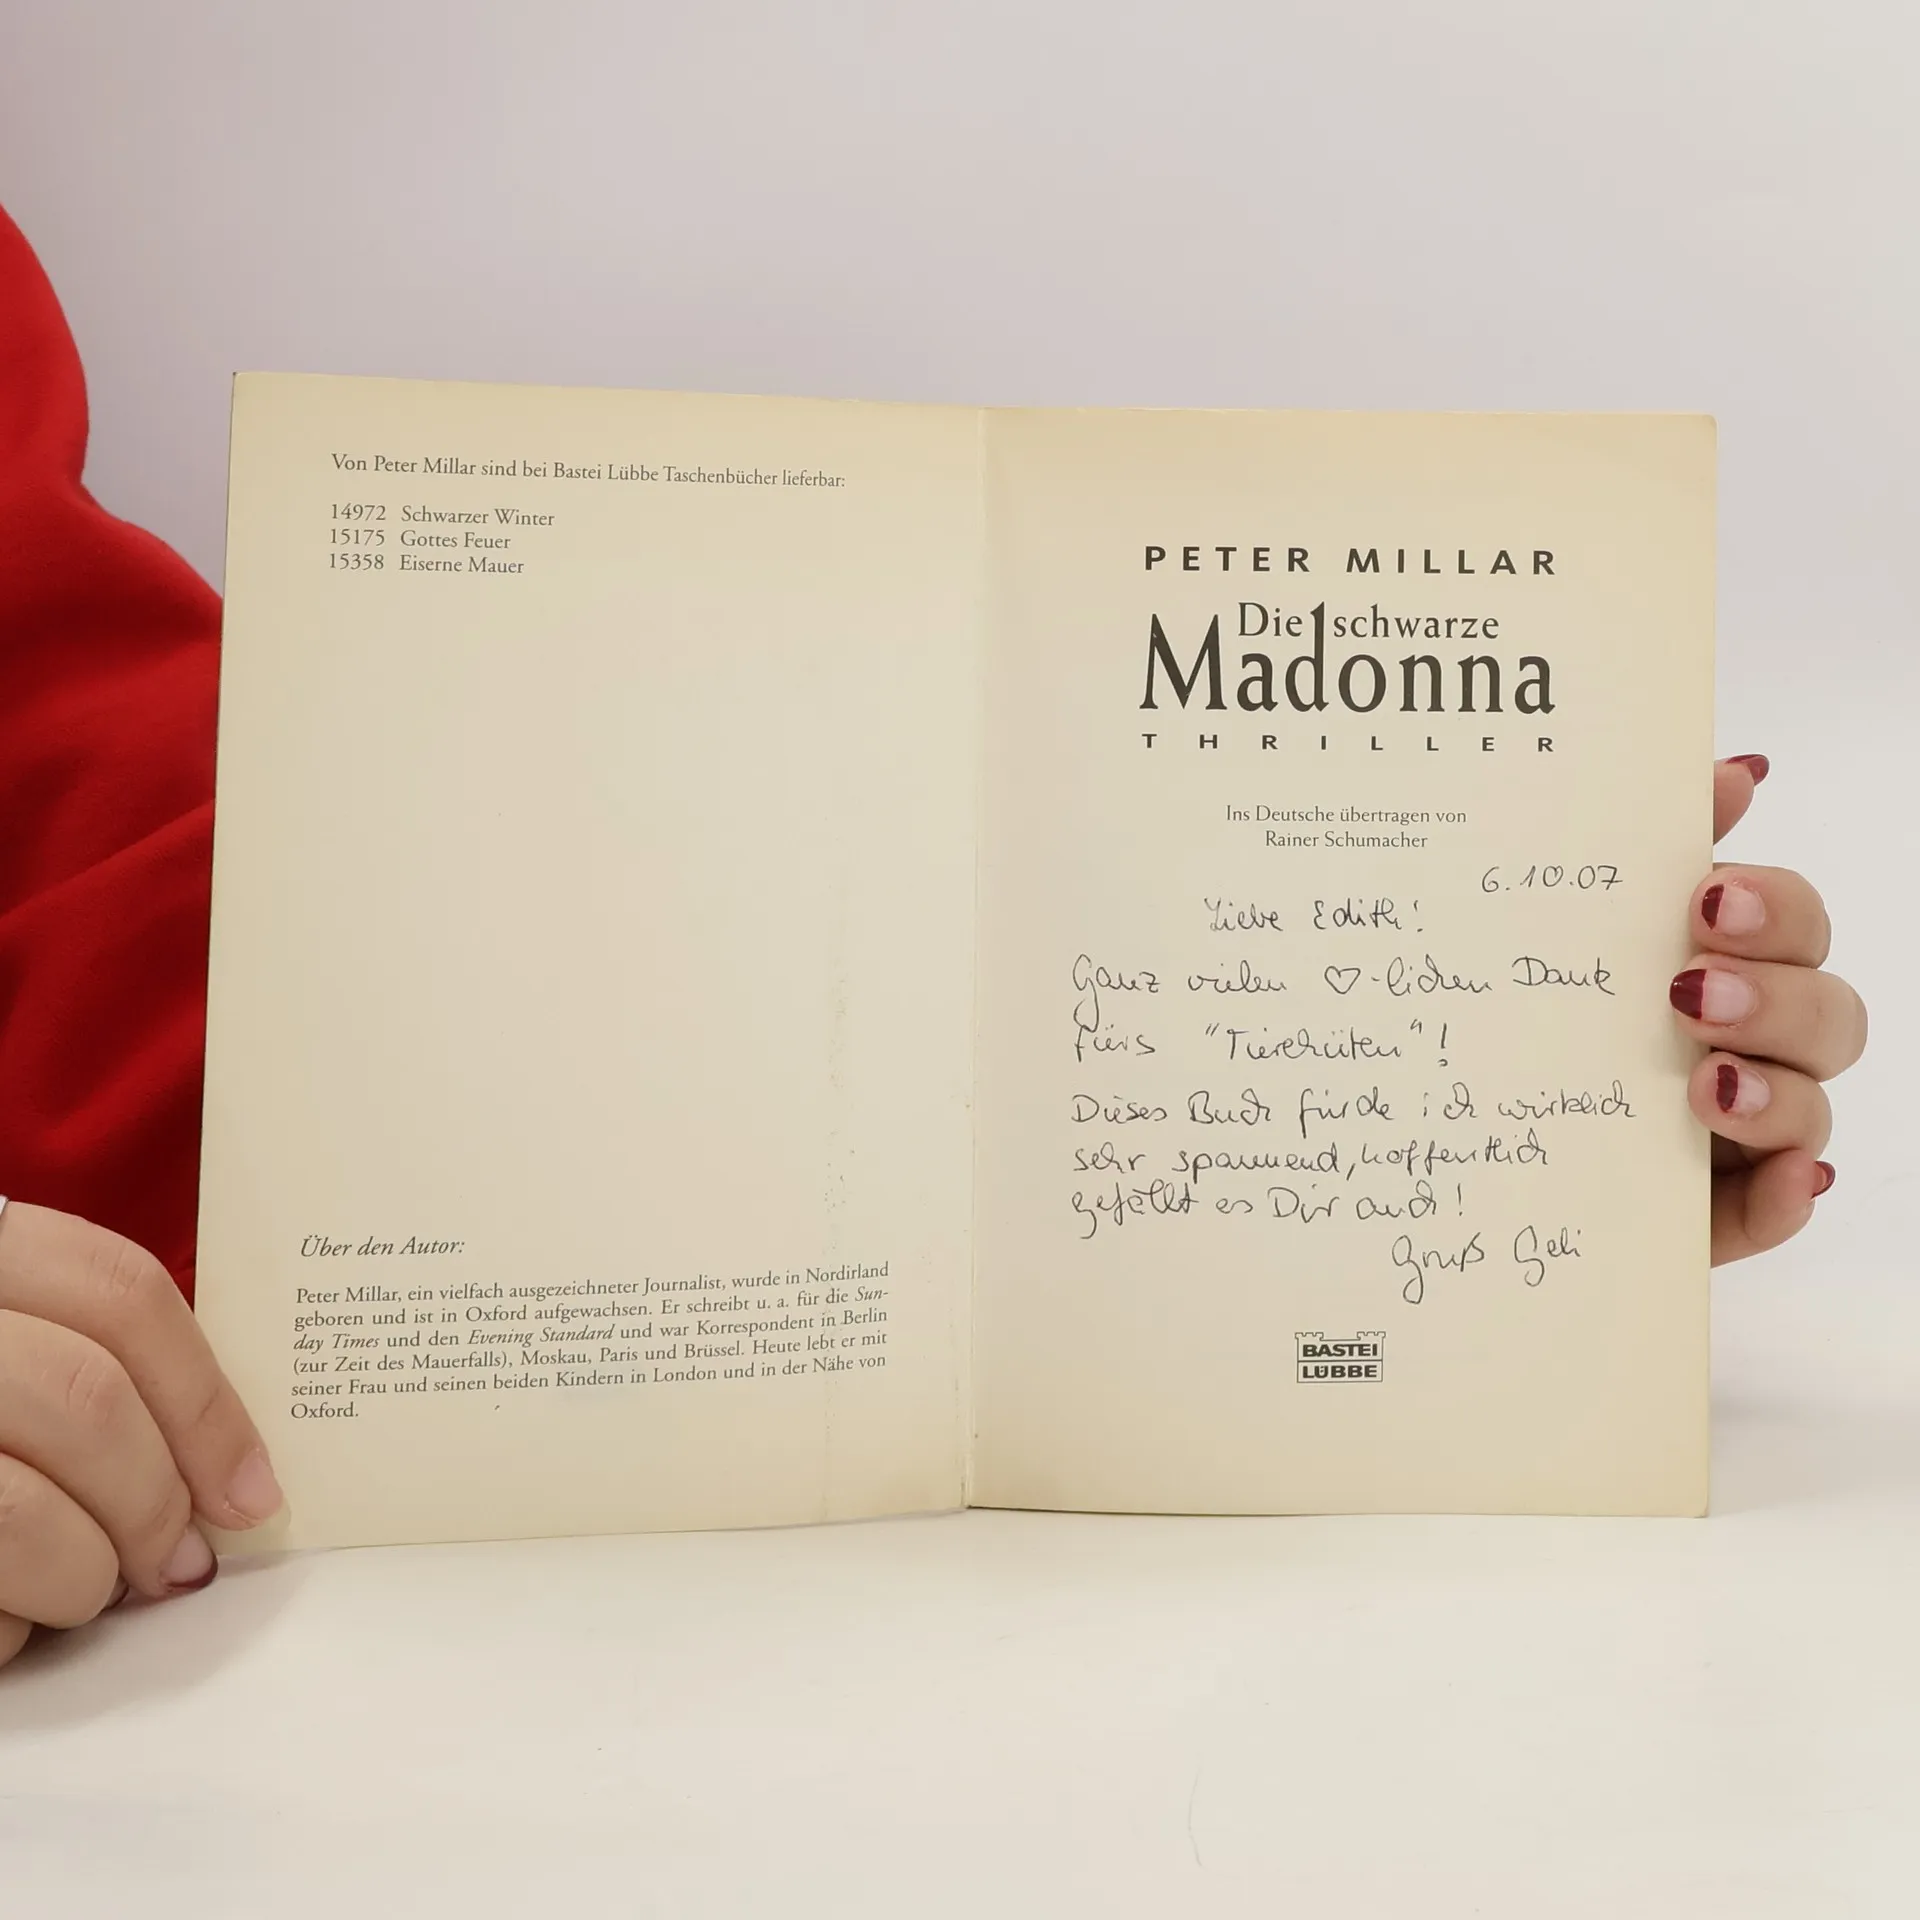 Von Peter Millar sind bei Bastei Lübbe Taschenbücher lieferbar:
14972 Schwarzer Winter
15175 Gottes Feuer
15358 Eiserne Mauer
Über den Autor:
Peter Millar, ein vielfach ausgezeichneter Journalist, wurde in Nordirland
geboren und ist in Oxford aufgewachsen. Er schreibt u. a. für die Sun-
day Times und den Evening Standard und war Korrespondent in Berlin
(zur Zeit des Mauerfalls), Moskau, Paris und Brüssel. Heute lebt er mit
seiner Frau und seinen beiden Kindern in London und in der Nähe von
Oxford.
PETER MILLAR
Die schwarze
Madonna
THRILLER
Ins Deutsche übertragen von
Rainer Schumacher
6.10.07
Liebe Edith!
Ganz vielen ♡-lichen Dank
fürs "Tierehüten"!
Dieses Buch finde ich wirklich
sehr spannend, hoffentlich
gefällt es Dir auch!
Gruß Geli
BASTEI
LÜBBE